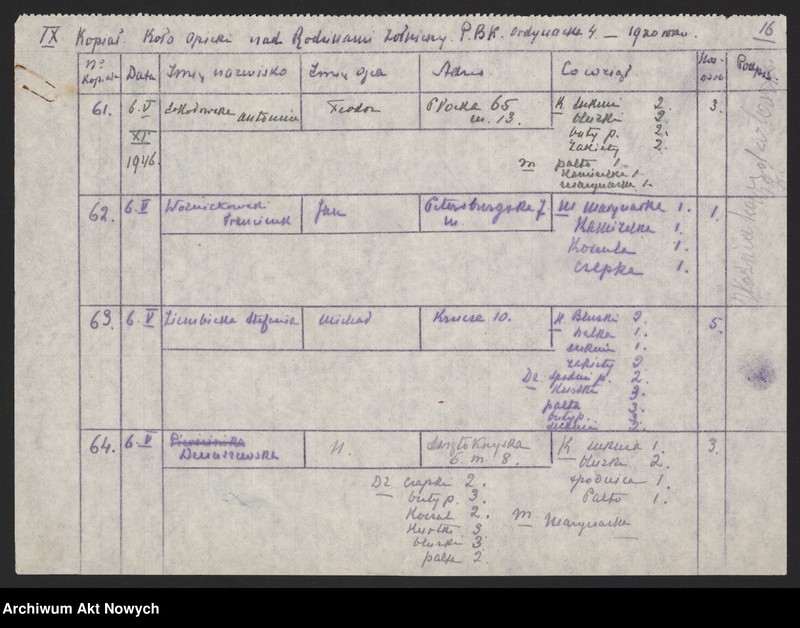 IX Kopiał Koło Opieki nad Rodzinami Żołnierzy. P.B.K. Ordynacka 4 — 1920 roku.
16
No Kopiał.
Data
Imię nazwisko
Imię ojca
Adres
Co wziął
Podpis.
61.
6. V
XI
1946.
Antonina
Teodor
Płocka 65
m. 13.
K sukni 2.
bluzki 2.
buty p. 2.
żakiety 2.
M palto 1.
Kamizelka 1.
marynarka 1.
3.
62.
6. V
Woźnickowski
Franciszek
Jan
Petersburgska 7.
m.
M marynarka 1.
Kamizelka 1.
Koszula 1.
Czapka 1.
1.
63.
6. V
Ziembicka Stefania
Michał
Krucza 10.
K. Bluzki 2.
halka 1.
suknia 1.
żakiety 2.
Dz. spodni p. 2.
Kurtki 3.
palta 3.
buty p. 2.
suknia 3.
5.
64.
6. V
Domaszewska
N.
6. m. 8.
K suknia 1.
bluzki 2.
spódnica 1.
Palto 1.
M Marynarka
3.
Dz czapki 2.
buty p. 3.
Koszul 2.
Kurtki 3
bluzki 3
palta 2
Archiwum Akt Nowych